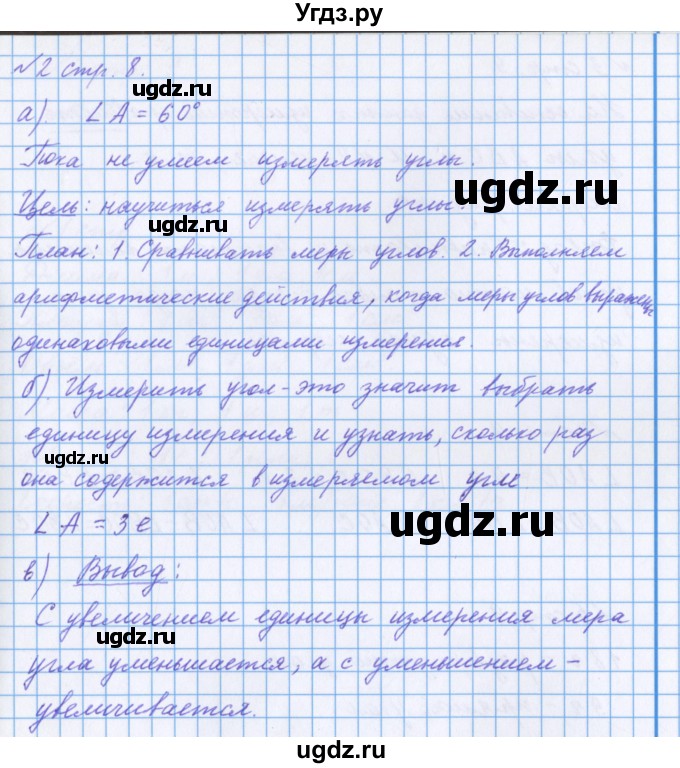 Угдз.ру
№2 стр. 8.
ugdz.ru
а). ∠A = 60°
Пока не умеем измерять углы.
ugdz.ru
Цель: научиться измерять углы.
План: 1. Сравнивать меры углов. 2. Выполняем
арифметические действия, когда меры углов выражены
одинаковыми единицами измерения.
б). Измерить угол - это значит выбрать
единицу измерения и узнать, сколько раз
ugdz.ru
она содержится в измеряемом угле
∠A = 3e
ugdz.ru
в) Вывод:
С увеличением единицы измерения мера
ugdz.ru
угла уменьшается, а с уменьшением –
увеличивается.
ugdz.ru